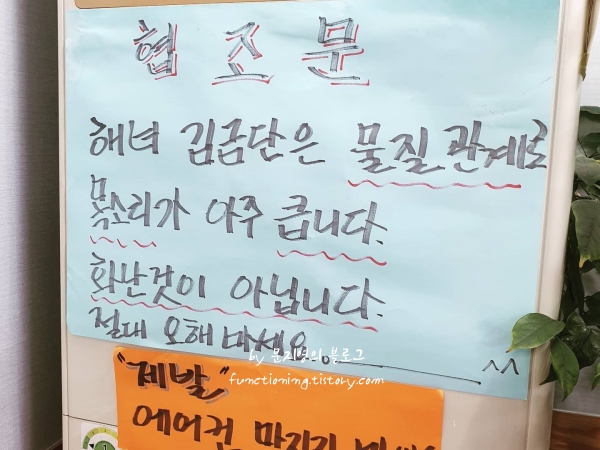 협조문
해녀 김금단은 물질 관계로
목소리가 아주 큽니다.
화난것이 아닙니다.
절대 오해 마세요. ^^
by 문지영의 블로그
functioning.tistory.com
"제발"
에어컨 만지지